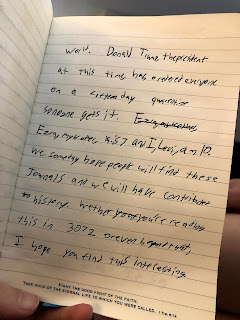 world. Donald Trump, thepresident
at this time, has ordered everyone
on a day quarantine
someone gets it.
Ezra, my brother, is 7 and I, Levi, am 10.
We someday hope people will find these
Journals and we will have contributed
to history. wether you're reading
this in 3072 or even
I hope you find this interesting.
FIGHT THE GOOD FIGHT OF THE FAITH.
TAKE HOLD OF THE ETERNAL LIFE TO WHICH YOU WERE CALLED. 1 TIM. 6:12